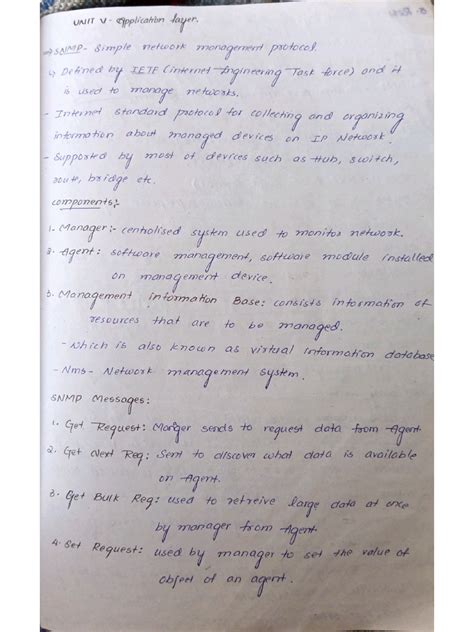 UNIT V - Application layer.
→ SNMP - Simple network management protocol.
↳ Defined by IETF (Internet Engineering Task force) and it
is used to manage networks.
- Internet standard protocol for collecting and organizing
information about managed devices on IP Network.
- Supported by most of devices such as Hub, switch,
route, bridge etc.
components:-
1. Manager:- centralised system used to monitor network.
2. Agent: software management, software module installed
on management device.
3. Management information Base: consists information of
resources that are to be managed.
- which is also known as virtual information database
- Nms - Network management system.
SNMP Messages:
1. Get Request: Manger sends to request data from Agent.
2. Get Next Req: Sent to discover what data is available
on Agent.
3. Get Bulk Req: used to retreive large data at once
by manager from Agent
4. Set Request: used by manager to set the value of
object of an agent.